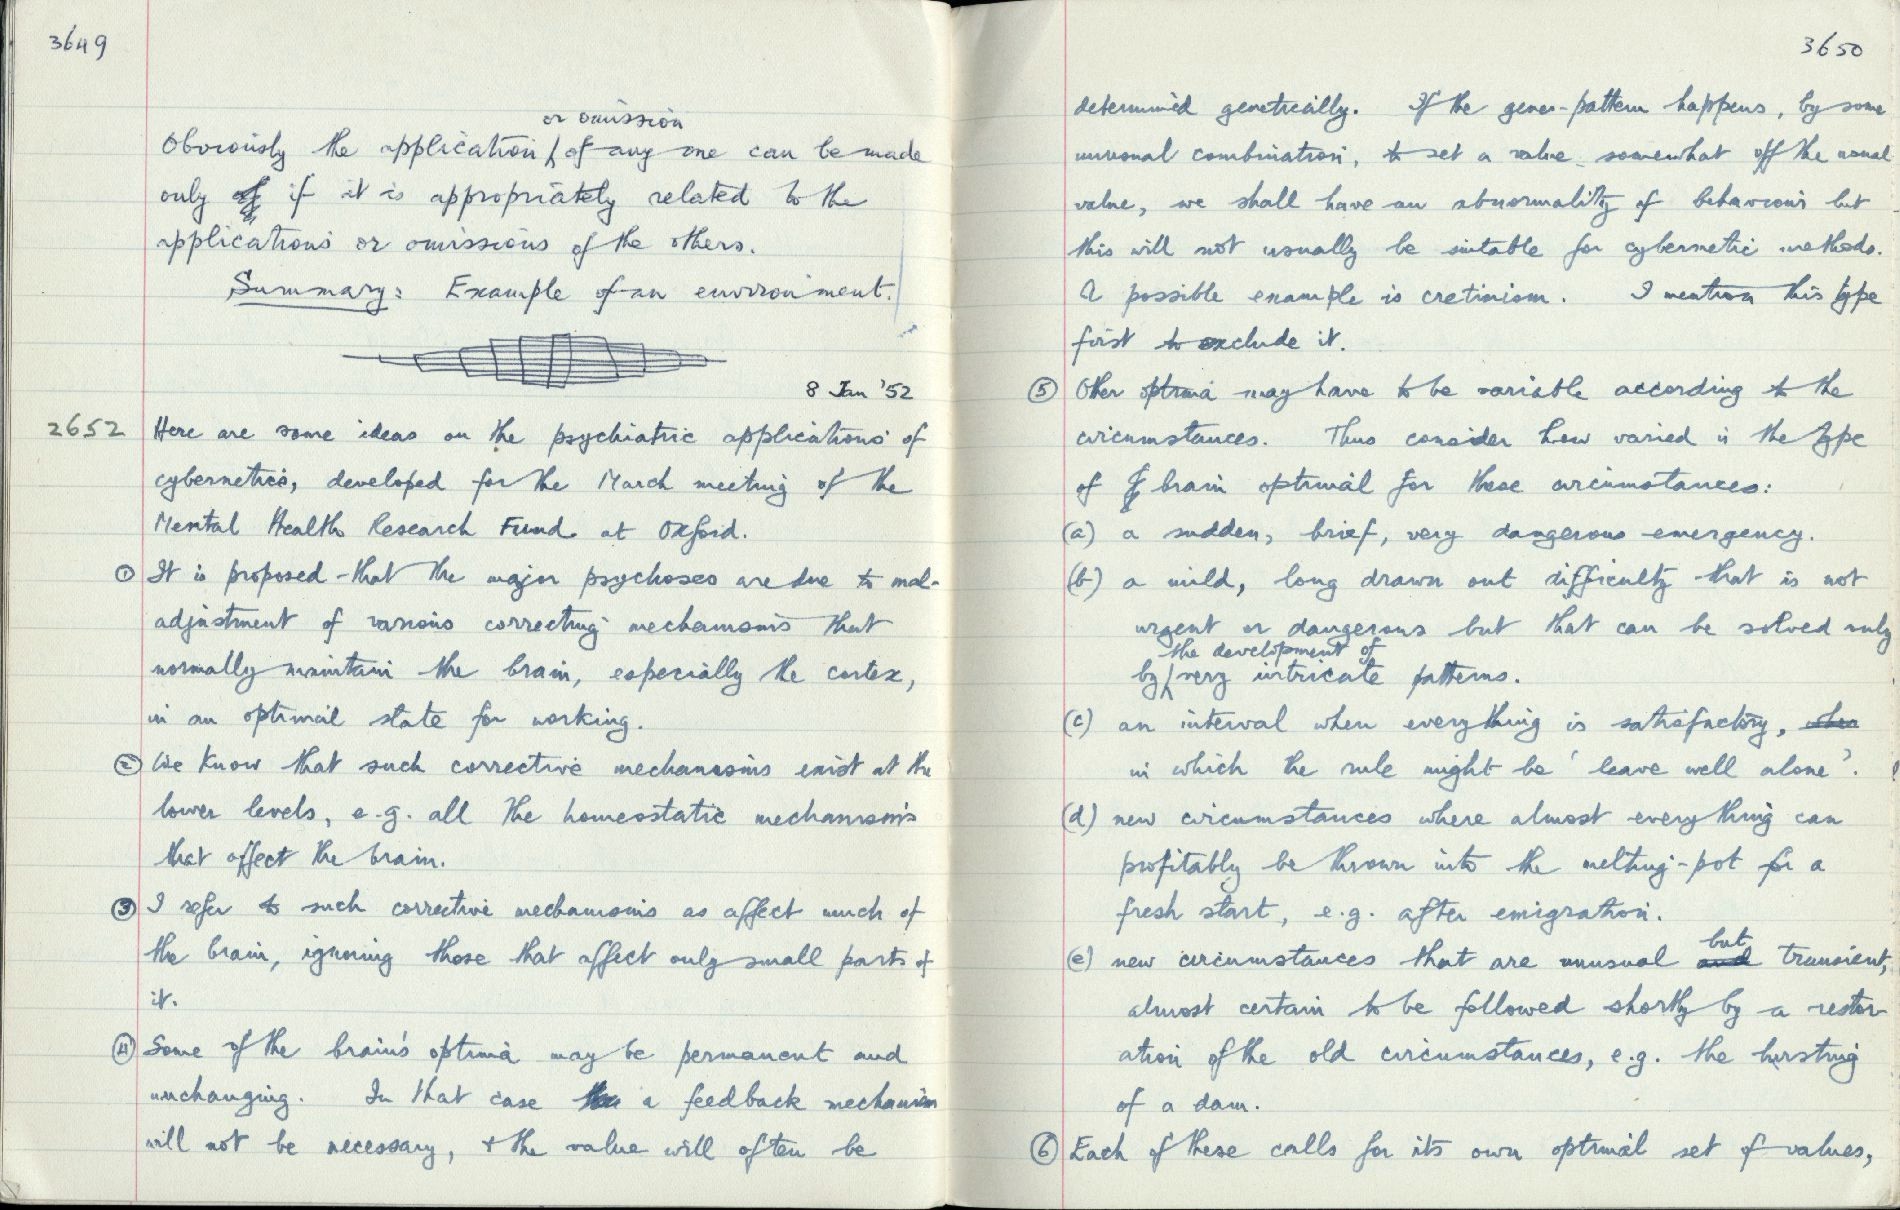 3649
or omission
Obviously the application / of any one can be made
only if it is appropriately related to the
applications or omissions of the others.
Summary: Example of an environment.
8 Jan '52
2652 Here are some ideas on the psychiatric applications of
cybernetics, developed for the March meeting of the
Mental Health Research Fund at Oxford.
① It is proposed that the major psychoses are due to mal-
adjustment of various correcting mechanisms that
normally maintain the brain, especially the cortex,
in an optimal state for working.
② We know that such corrective mechanisms exist at the
lower levels, e.g. all the homeostatic mechanisms
that affect the brain.
③ I refer to such corrective mechanisms as affect much of
the brain, ignoring those that affect only small parts of
it.
④ Some of the brain's optima may be permanent and
unchanging. In that case a feedback mechanism
will not be necessary, + the value will often be
3650
determined genetically. If the gene-pattern happens, by some
unusual combination, to set a value somewhat off the usual
value, we shall have an abnormality of behaviour but
this will not usually be suitable for cybernetic methods.
A possible example is cretinism. I mention this type
first to exclude it.
⑤ Other optima may have to be variable according to the
circumstances. Thus consider how varied is the type
of brain optimal for these circumstances:
(a) a sudden, brief, very dangerous emergency.
(b) a mild, long drawn out difficulty that is not
urgent or dangerous but that can be solved only
the development of
by / very intricate patterns.
(c) an interval when everything is satisfactory, when
in which the rule might be 'leave well alone'.
(d) new circumstances where almost everything can
profitably be thrown into the melting-pot for a
fresh start, e.g. after emigration.
but
(e) new circumstances that are unusual and transient,
almost certain to be followed shortly by a restor-
ation of the old circumstances, e.g. the bursting
of a dam.
⑥ Each of these calls for its own optimal set of values,